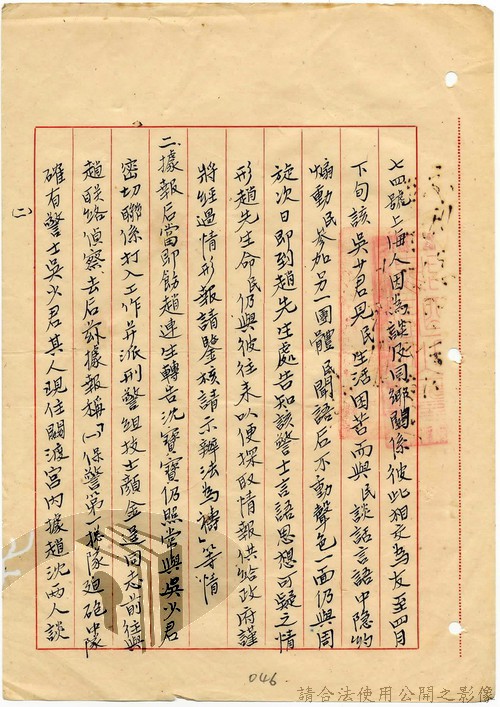 七四號上海人因為談及同鄉關係彼此相交為友至四月
下旬該吳少君見民生活困苦而與民談話言語中隱約
煽動民參加另一團體民聞語后不動聲色一面仍與周
旋次日即到趙先生處告知該警士言語思想可疑之情
形趙先生命民仍與彼往來以便探取情報供給政府謹
將經過情形報請鑒核請示辦法為禱」等情
二、據報后當即飭趙連生轉告沈寶寶仍照常與吳少君
密切聯係打入工作并派刑警組技士顏金是同志前往與
趙联絡偵察去后茲據報稱「㈠保警第一總隊迫砲中隊
確有警士吳少君其人現住關渡宮內據趙沈兩人談
(二)
046
請合法使用公開之影像